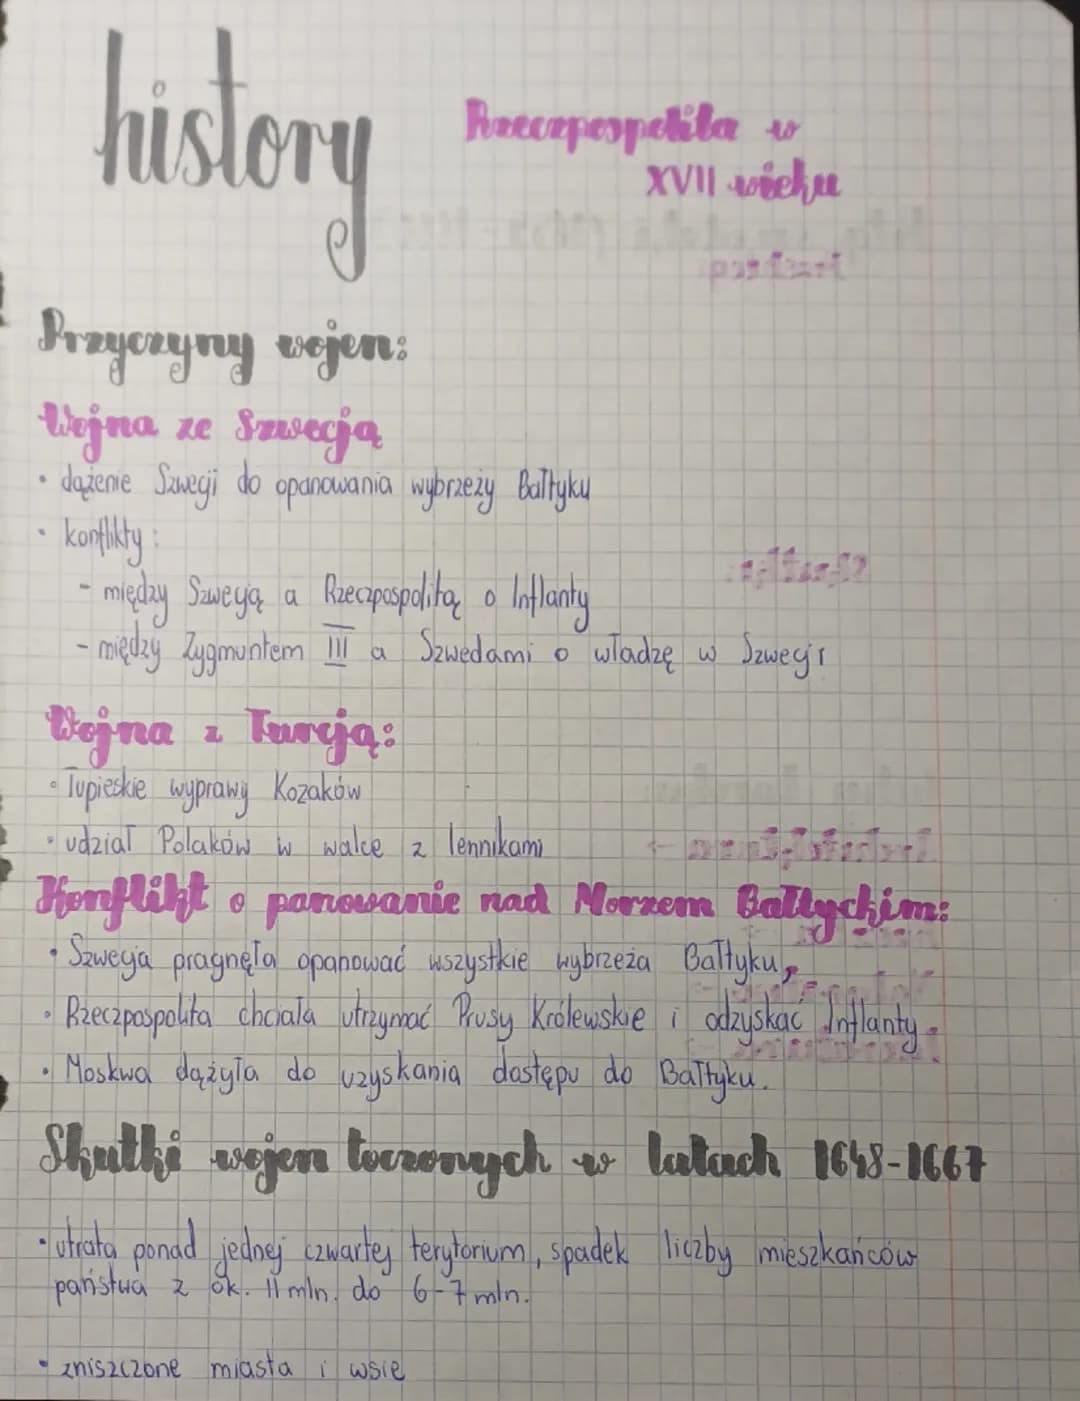 history
Rzeczpospolita w
XVII wieku
Przyczyny wojen:
Wojna ze Szwecją
• dążenie Szwecji do opanowania wybrzeży Bałtyku
• konflikty:
- między Szwecją a Rzeczpospolitą o Inflanty
- między Zygmuntem III a Szwedami o władzę w Szwecji
Wojna z Turcją:
• łupieskie wyprawy Kozaków
• udział Polaków w walce z lennikami
Konflikt o panowanie nad Morzem Bałtyckim:
• Szwecja pragnęła opanować wszystkie wybrzeża Bałtyku,
• Rzeczpospolita chciała utrzymać Prusy Królewskie i odzyskać Inflanty.
• Moskwa dążyła do uzyskania dostępu do Bałtyku.
Skutki wojen toczonych w latach 1648-1667
• utrata ponad jednej czwartej terytorium, spadek liczby mieszkańców
państwa z ok. 11 mln. do 6-7 mln.
• zniszczone miasta i wsie